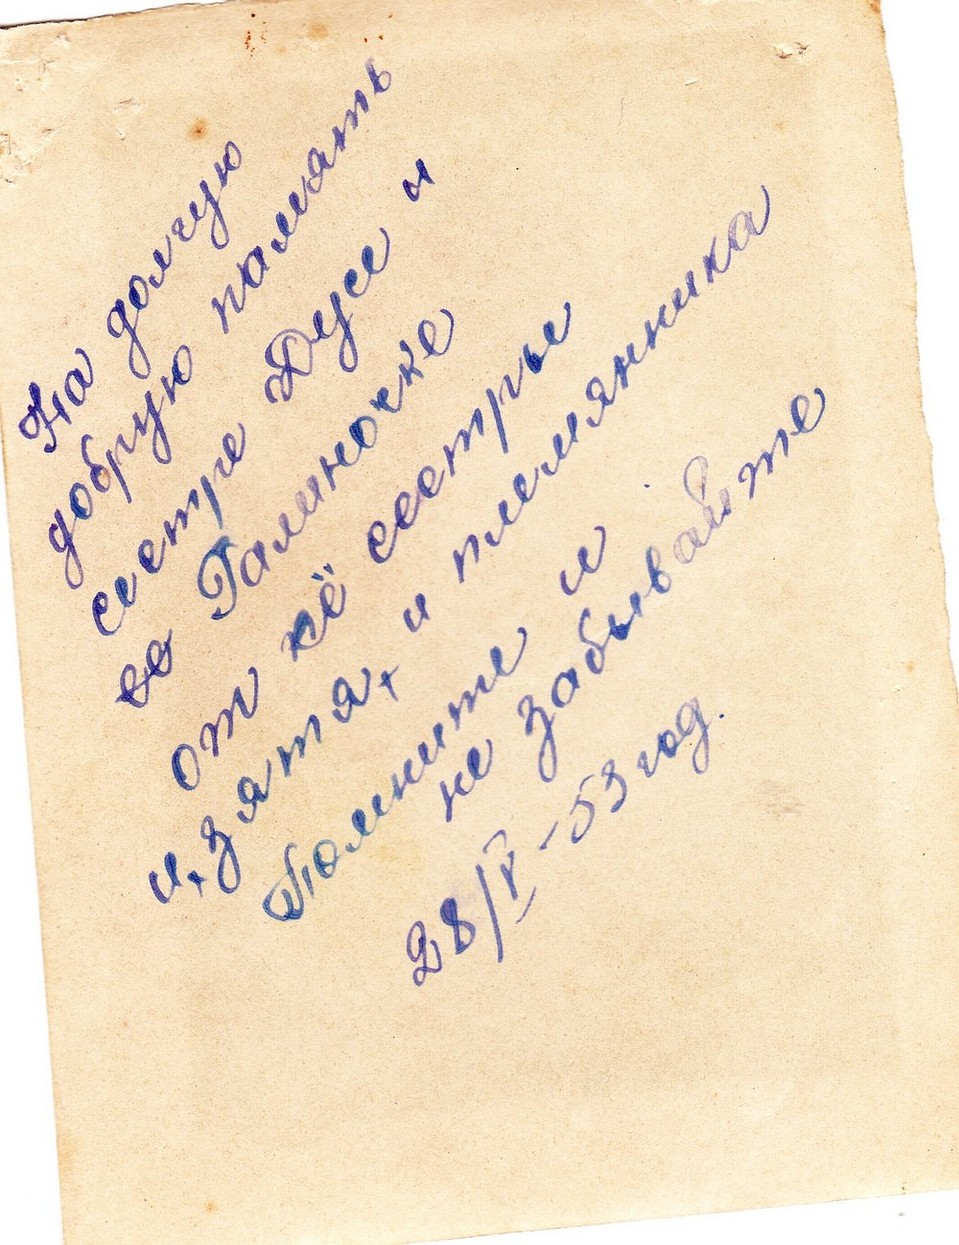 На долгую
добрую память
сестре Дусе и
ее Галиночке
от её сестры
и зятя, и племянника
Помните и
не забывайте
28/V-53 год.